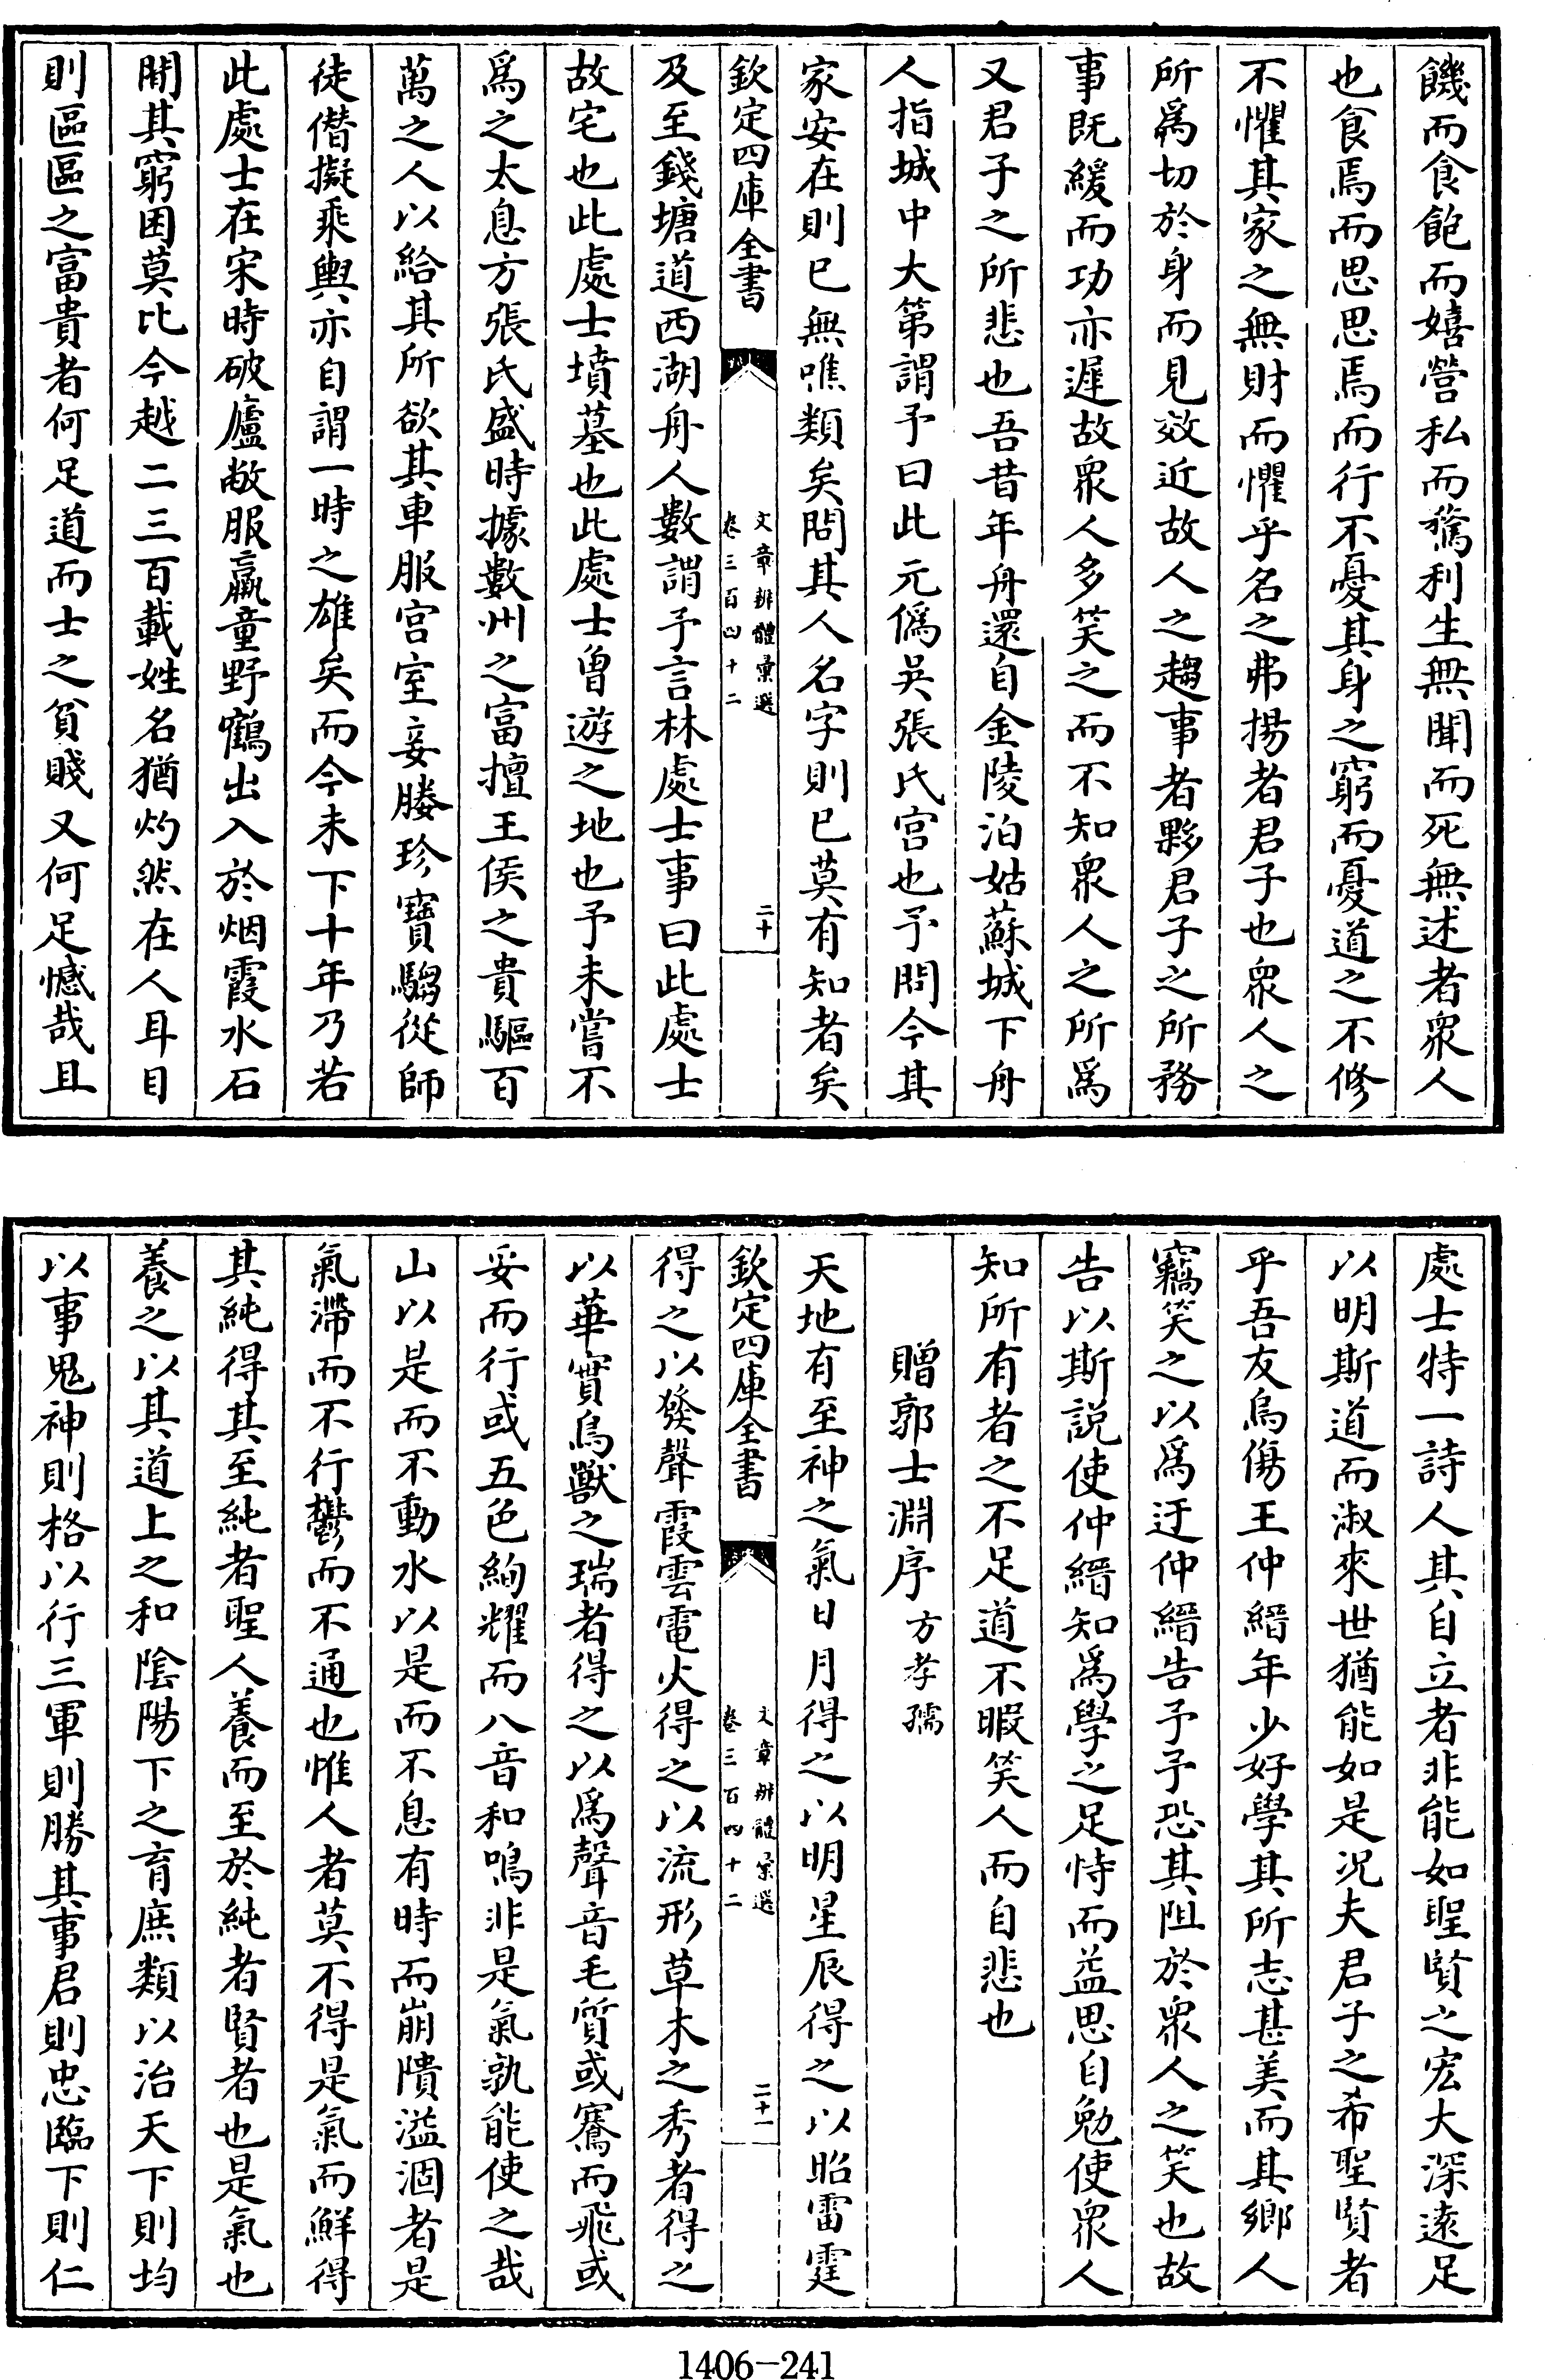 饑而食飽而嬉營私而騖利生無聞而死無述者衆人
也食焉而思思焉而行不憂其身之窮而憂道之不修
不懼其家之無財而懼乎名之弗揚者君子也衆人之
所爲切於身而見效近故人之趨事者夥君子之所務
事既緩而功亦遲故衆人多笑之而不知衆人之所爲
又君子之所悲也吾昔年舟還自金陵泊姑蘇城下舟
人指城中大第謂予曰此元僞吳張氏宮也予問今其
家安在則已無噍類矣問其人名字則已莫有知者矣
欽定四庫全書
文章辨體彙選
卷三百四十二
二十
及至錢塘道西湖舟人數謂予言林處士事曰此處士
故宅也此處士墳墓也此處士曾遊之地也予未嘗不
爲之太息方張氏盛時據數州之富擅王侯之貴驅百
萬之人以給其所欲其車服宮室妾媵珍寶騶從師
徒僣擬乘輿亦自謂一時之雄矣而今未下十年乃若
此處士在宋時破廬敝服羸童野鶴出入於烟霞水石
閒其窮困莫比今越二三百載姓名猶灼然在人耳目
則區區之富貴者何足道而士之貧賤又何足憾哉且
處士特一詩人其自立者非能如聖賢之宏大深遠足
以明斯道而淑來世猶能如是况夫君子之希聖賢者
乎吾友烏傷王仲縉年少好學其所志甚美而其鄉人
竊笑之以爲迂仲縉告予予恐其阻於衆人之笑也故
告以斯說使仲縉知爲學之足恃而益思自勉使衆人
知所有者之不足道不暇笑人而自悲也
贈郭士淵序 方孝孺
天地有至神之氣日月得之以明星辰得之以昭雷霆
欽定四庫全書
文章辨體彙選
卷三百四十二
二十一
得之以發聲霞雲電火得之以流形草木之秀者得之
以華實鳥獸之瑞者得之以爲聲音毛質或騫而飛或
妥而行或五色絢耀而八音和鳴非是氣孰能使之哉
山以是而不動水以是而不息有時而崩隤溢涸者是
氣滯而不行鬱而不通也惟人者莫不得是氣而鮮得
其純得其至純者聖人養而至於純者賢者也是氣也
養之以其道上之和陰陽下之育庶類以治天下則均
以事鬼神則格以行三軍則勝其事君則忠臨下則仁
1406-241